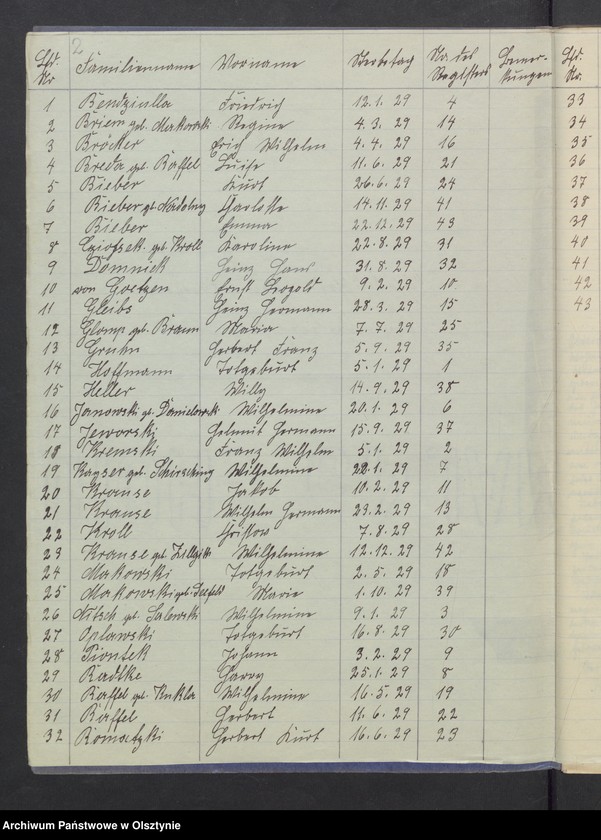 2
Lfd. Nr. Familienname Vorname Sterbetag No. des Registers Bemerkungen Lfd. Nr.
1 Bendziulla Friedrich 12.1.29 4 33
2 Briem geb. Makowski Regine 4.3.29 14 34
3 Bröcker Erich Wilhelm 4.4.29 16 35
4 Breda geb. Raffel Luise 11.6.29 21 36
5 Bieber Kurt 26.6.29 24 37
6 Bieber gb. Nadolny Charlotte 14.11.29 41 38
7 Bieber Emma 22.12.29 43 39
8 geb. Kroll Karoline 22.8.29 31 40
9 Domnick Heinz Hans 31.8.29 32 41
10 von Goetzen Ernst Leopold 9.2.29 10 42
11 Gleibs Heinz Hermann 28.3.29 15 43
12 Glomp geb. Braun Maria 7.7.29 25
13 Gruhn Herbert Franz 5.9.29 35
14 Hoffmann Totgeburt 5.1.29 1
15 Heller Willy 14.9.29 38
16 Janowski gb. Danielowski Wilhelmine 20.1.29 6
17 Jeworski Helmut Hermann 15.9.29 37
18 Kremski Franz Wilhelm 5.1.29 2
19 Kayser geb. Wilhelmine 22.1.29 7
20 Krause Jakob 10.2.29 11
21 Krause Wilhelm Hermann 23.2.29 13
22 Kroll Gustav 7.8.29 28
23 Krause geb. Wilhelmine 12.12.29 42
24 Makowski Totgeburt 2.5.29 18
25 Makowski geb. Seefeld Marie 1.10.29 39
26 Nitsch geb. Salewski Wilhelmine 9.1.29 3
27 Oplawski Totgeburt 16.8.29 30
28 Piontek Johann 3.2.29 9
29 Radtke Harry 25.1.29 8
30 Raffel geb. Kukla Wilhelmine 16.5.29 19
31 Raffel Herbert 11.6.29 22
32 Romatzki Herbert Kurt 16.6.29 23
Archiwum Państwowe w Olsztynie